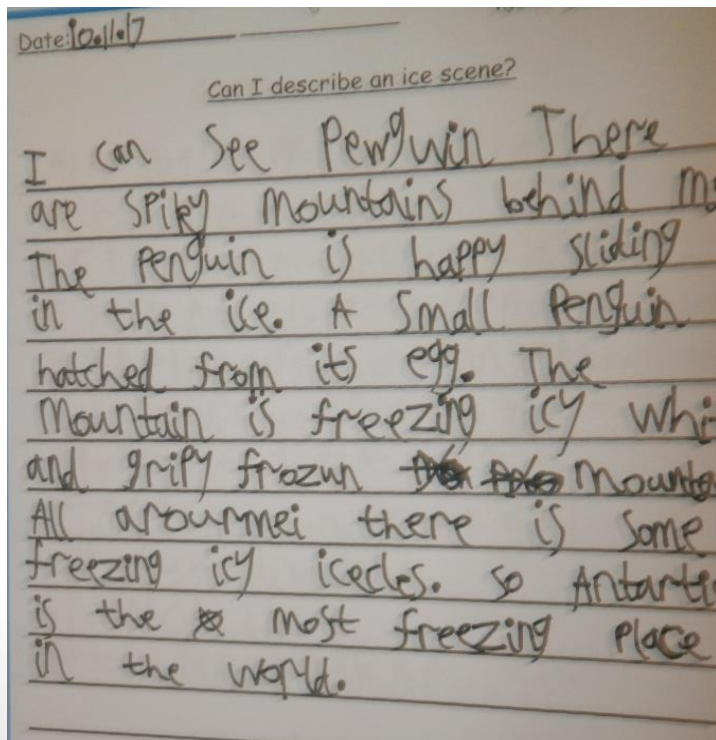 Date: 10.11.17
Can I describe an ice scene?
I can See Penguin There
are spiky mountains behind m
The Penguin is happy sliding
in the ice. A Small Penguin
hatched from its egg. The
Mountain is freezing icy whi
and gripy frozun mounta
All arourmei there is some
freezing icy icecles. so Antarti
is the most freezing place
in the world.